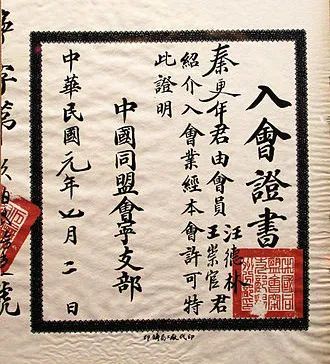 入會證書
秦更年君由會員汪德林王崇官君
紹介入會業經本會許可特
此證明
中國同盟會寧支部
中華民國元年四月二日